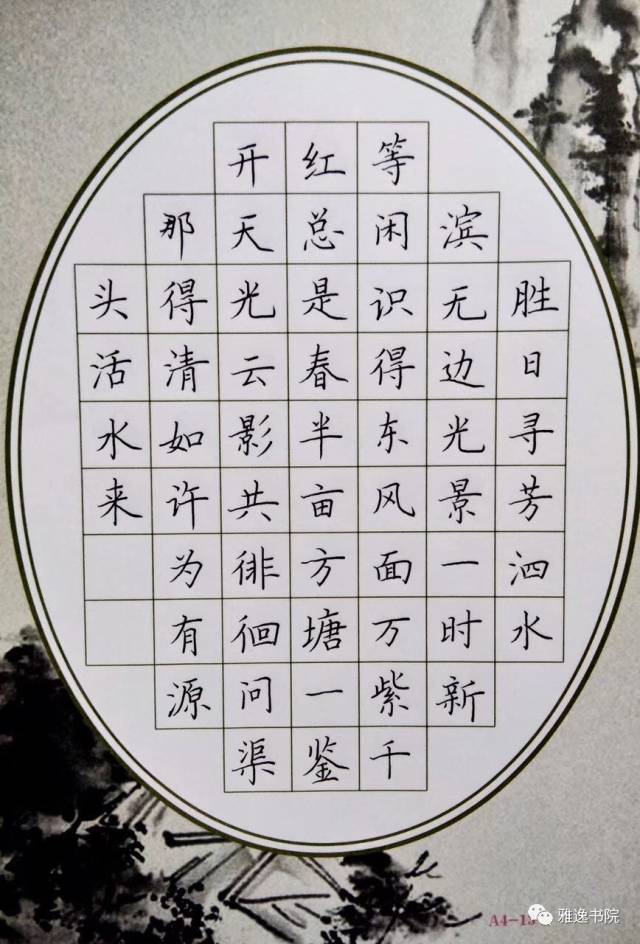 胜日寻芳泗水
滨无边光景一时新
等闲识得东风面万紫千
红总是春半亩方塘一鉴
开天光云影共徘徊问渠
那得清如许为有源
头活水来
雅逸书院